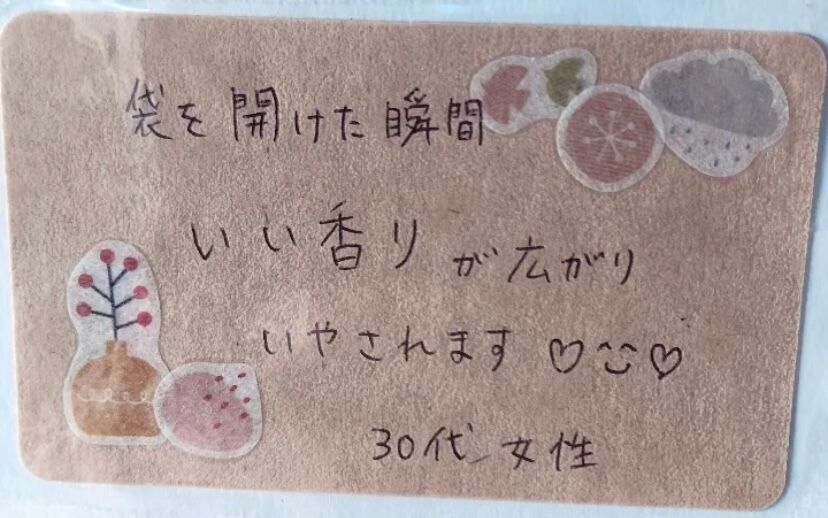 袋を開けた瞬間
いい香りが広がり
いやされます♡^_^♡
30代 女性